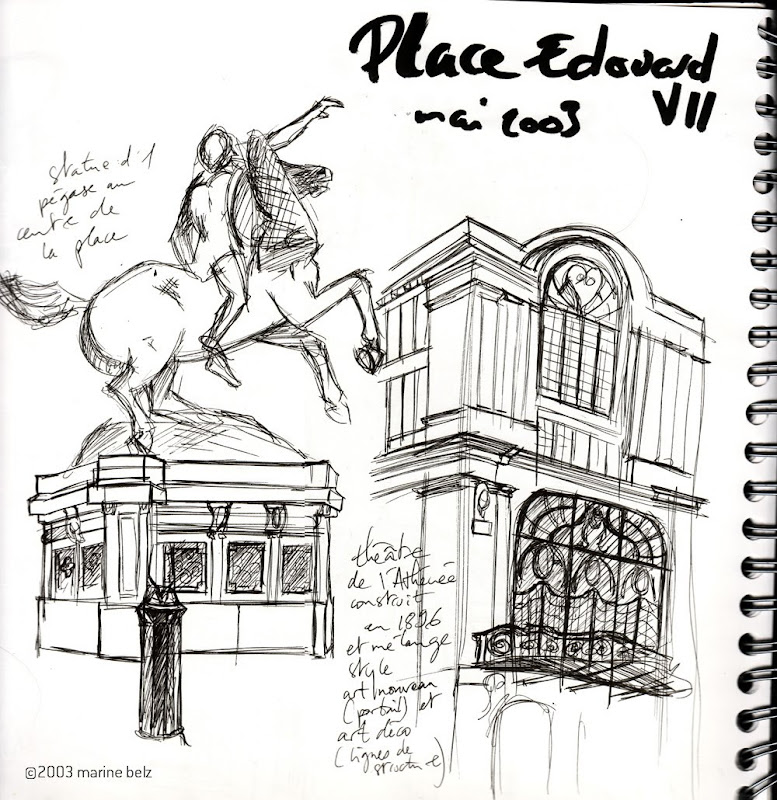 Place Edouard
VII
mai 2003
statue d'1
pégase au
centre de
la place
théâtre
de l'Athénée
construit
en 1896
et mélange
style
art nouveau
(portail) et
art déco
(lignes de
structure)
©2003 marine belz